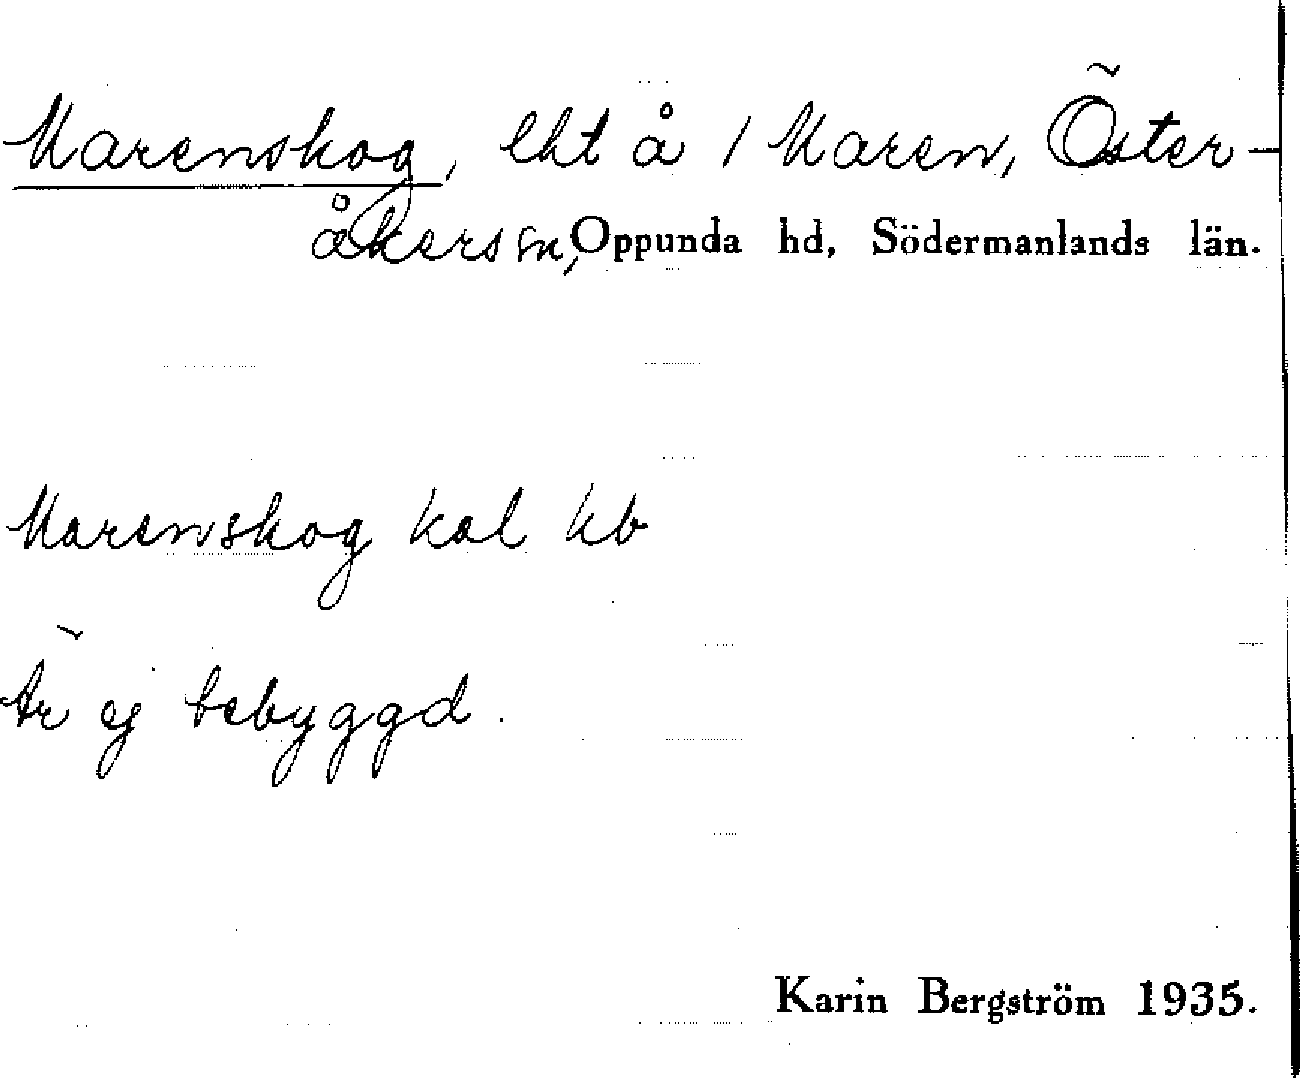 Marenskog, lht å 1 Maren, Öster-
åkers sn, Oppunda hd, Södermanlands län.
Marenskog kal kb
Är ej bebyggd.
Karin Bergström 1935.